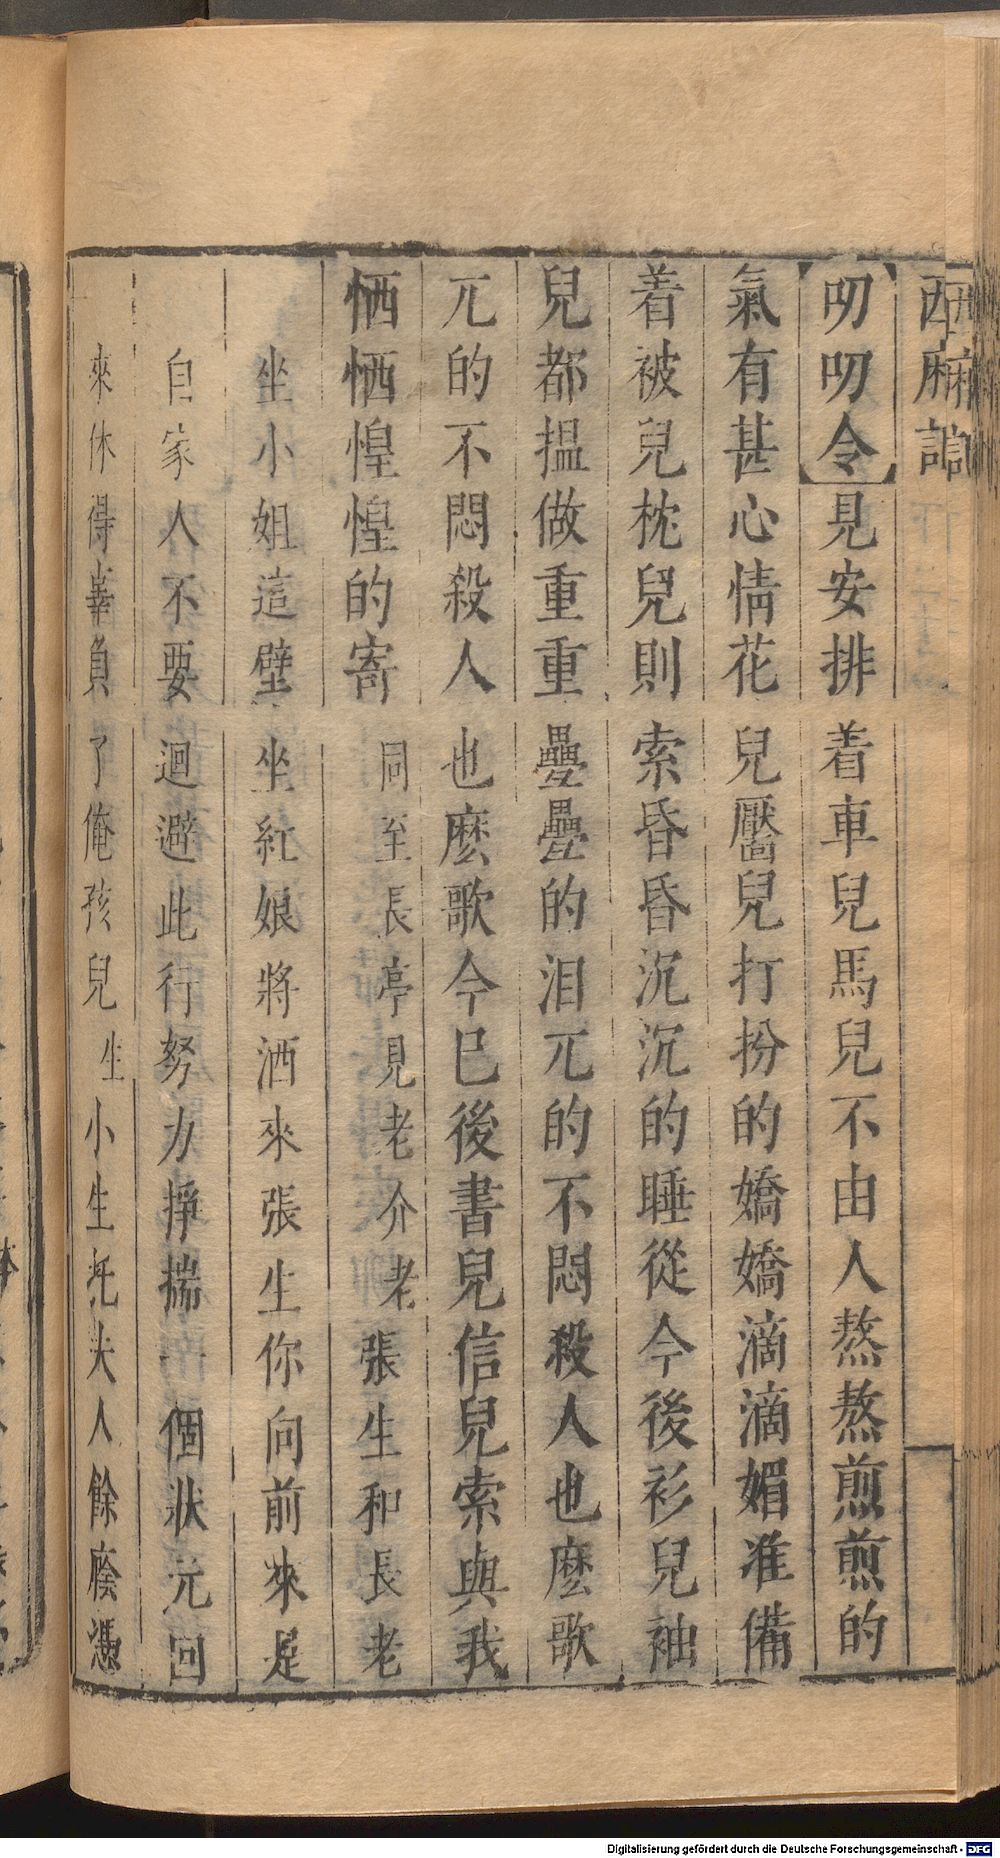 西廂記
叨叨令見安排着車兒馬兒不由人熬熬煎煎的
氣有甚心情花兒靨兒打扮的嬌嬌滴滴媚准備
着被兒枕兒則索昏昏沉沉的睡從今後衫兒袖
兒都揾做重重疊疊的泪兀的不悶殺人也麽歌
兀的不悶殺人也麽歌今已後書兒信兒索與我
恓恓惶惶的寄同至長亭見老介老張生和長老
坐小姐這壁坐紅娘將酒來張生你向前來是
自家人不要迴避此行努力掙揣一個狀元回
來休得辜負了俺孩兒生小生托夫人餘廕憑
Digitalisierung gefördert durch die Deutsche Forschungsgemeinschaft - DFG